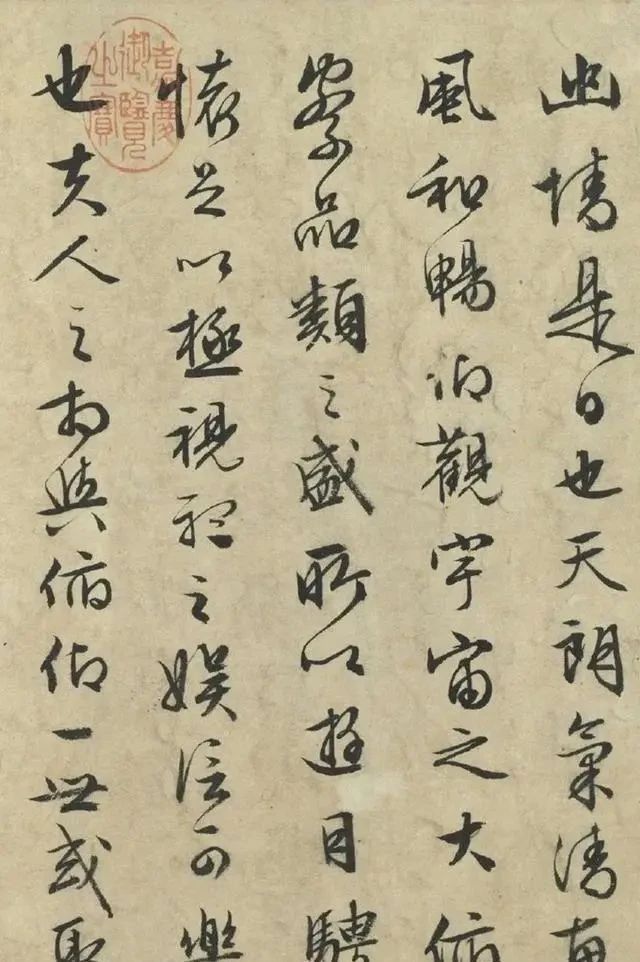 幽情是日也天朗氣清惠
風和暢仰觀宇宙之大俯
察品類之盛所以遊目騁
懷足以極視聽之娛信可樂
也夫人之相與俯仰一世或取
嘉慶御覽之寶